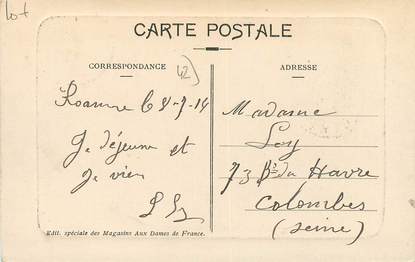 lot
CARTE POSTALE
CORRESPONDANCE
42
ADRESSE
Roanne le 2-7-14
Je déjeune et
Je viens
Madame
Loy
73 Bd du Havre
Colombes
(Seine)
Edit. spéciale des Magasins Aux Dames de France.